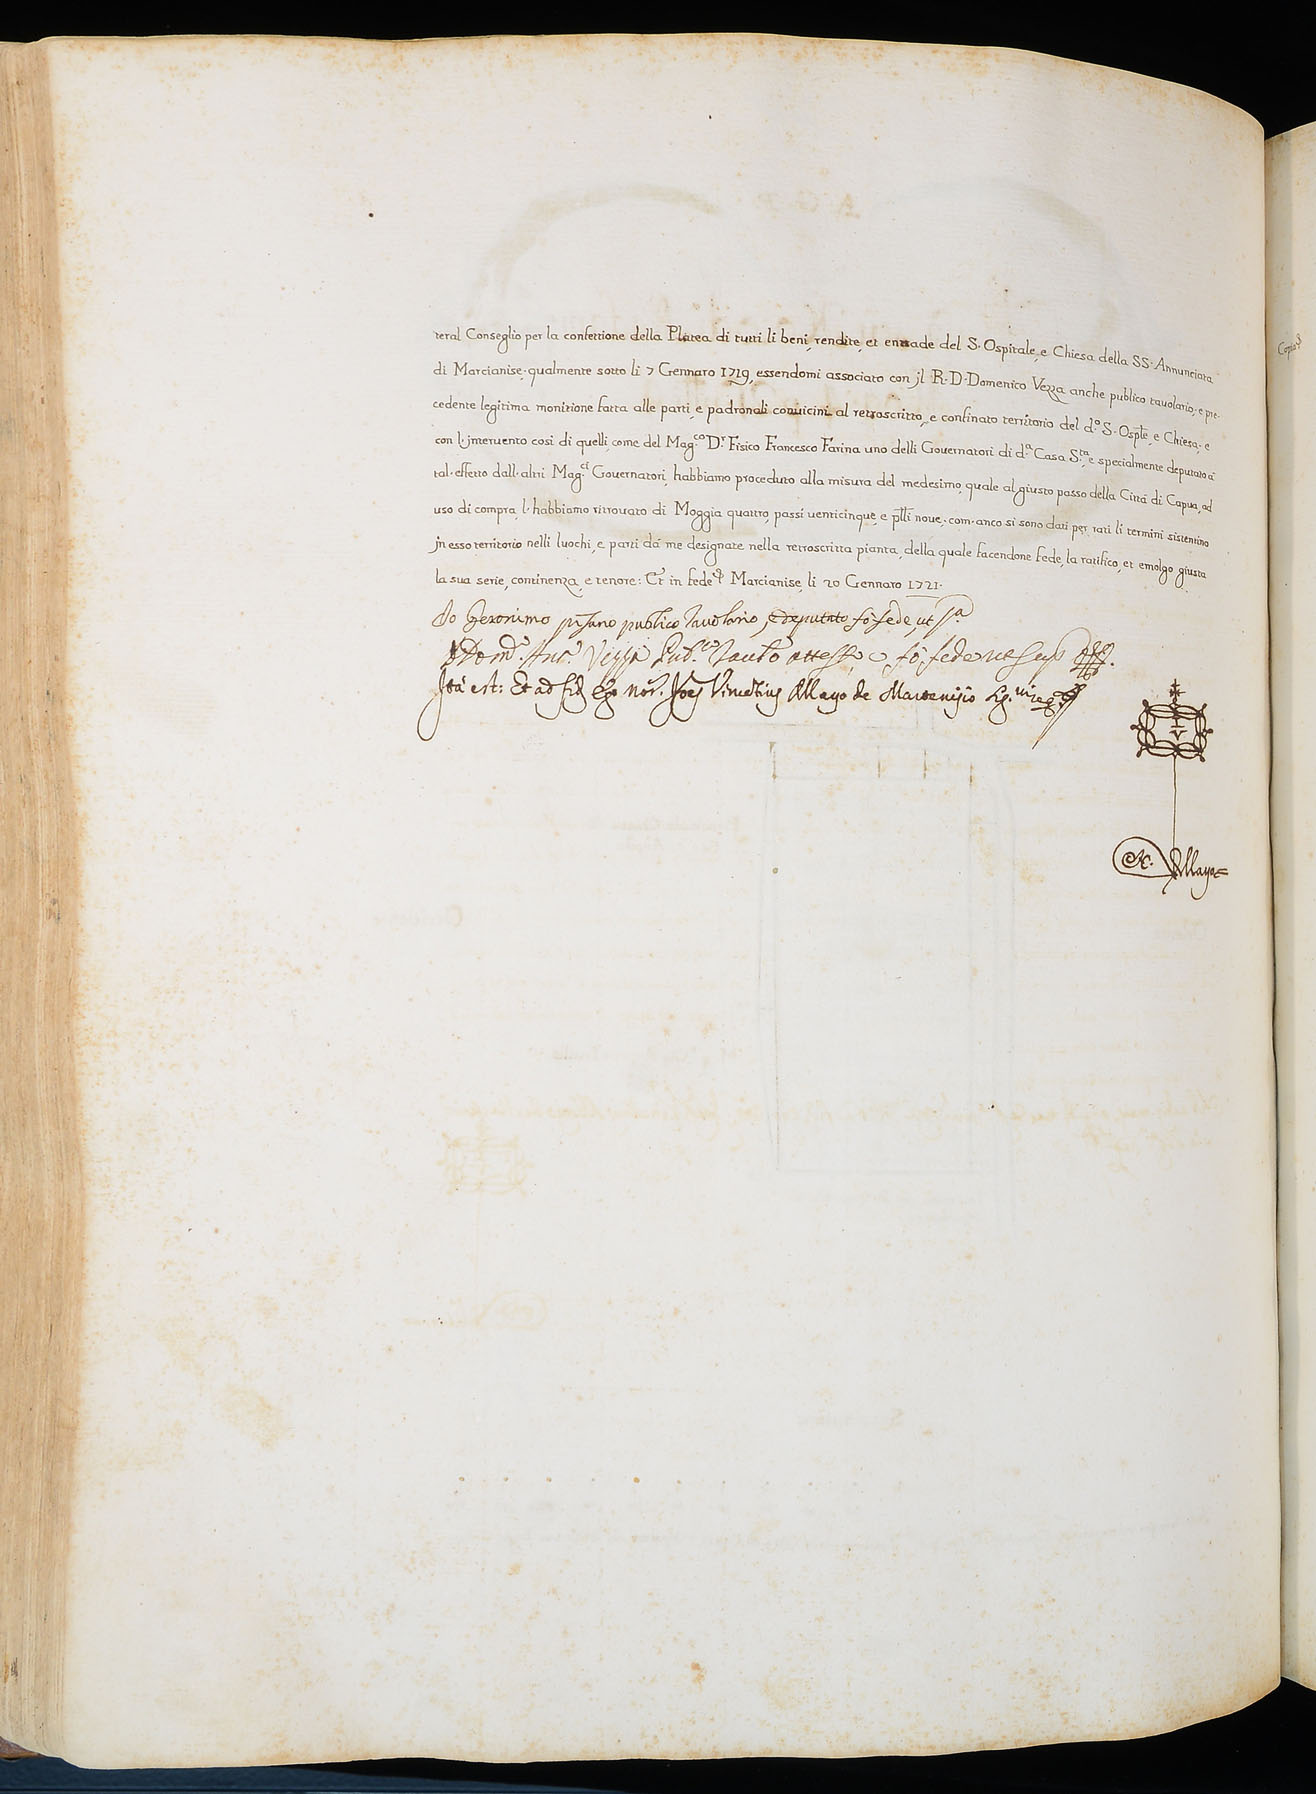 teral Conseglio per la confettione della Platea di tutti li beni, rendite, et entrade del S. Ospitale, e Chiesa della SS. Annunciata
di Marcianise, qualmente sotto li 7 Gennaro 1719, essendomi associato con jl R. D. Domenico Vezza anche publico tavolario, e pre-
cedente legitima monitione fatta alle parti, e padronali conuicini al retroscritto, e confinato territorio del d.º S. Osp̃le, e Chiesa, e
con l'jnteruento così di quelli, come del Mag.co D.r Fisico Francesco Farina uno delli Gouernatori di d.a Casa S.ta, e specialmente deputato a'
tal-effetto dall'altri Mag.ci Gouernatori, habbiamo proceduto alla misura del medesimo, quale al giusto passo della Cittá di Capua, ad
uso di compra, l'habbiamo ritrouato di Moggia quattro, passi uenticinque, e p̃lli noue, com'anco si sono dati per tati li termini sistentino
jn esso territorio nelli luochi, e parti dá me designate nella retroscritta pianta, della quale facendone fede, la ratifico, et emolgo giusta
la sua serie, continenza, e tenore: Et in fede Marcianise li 20 Gennaro 1721.
Io Geronimo publico Tavolario, e deputato fò fede, ut s.a
D. Dom.º Ant.º Vezza Pub.co Tauol.o attesto, e fò fede ut sup.
Jtá est: Et ad fid. Ego not. Joes Vincetius Allayo de Martenisio
Co
N. Allayo=